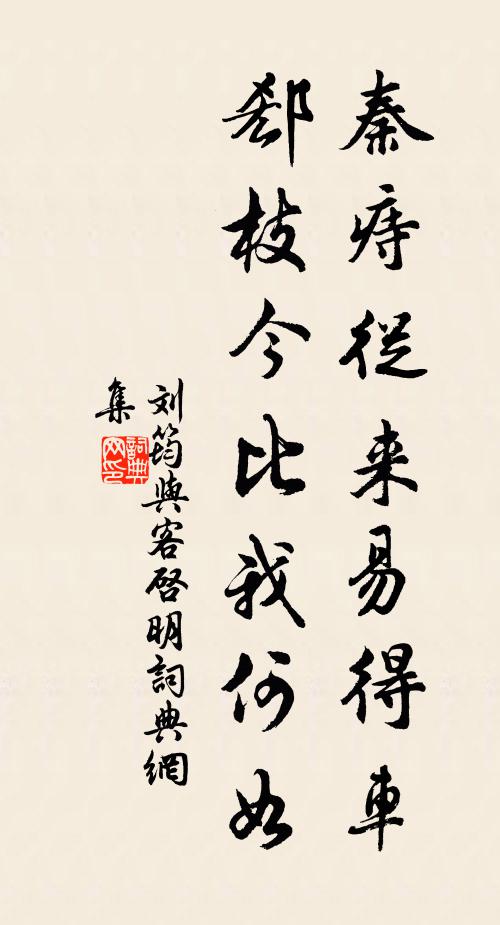 秦痔從来易得車
郄枝今比我何如
刘筠與客啓明詞典網
集
詞典網印